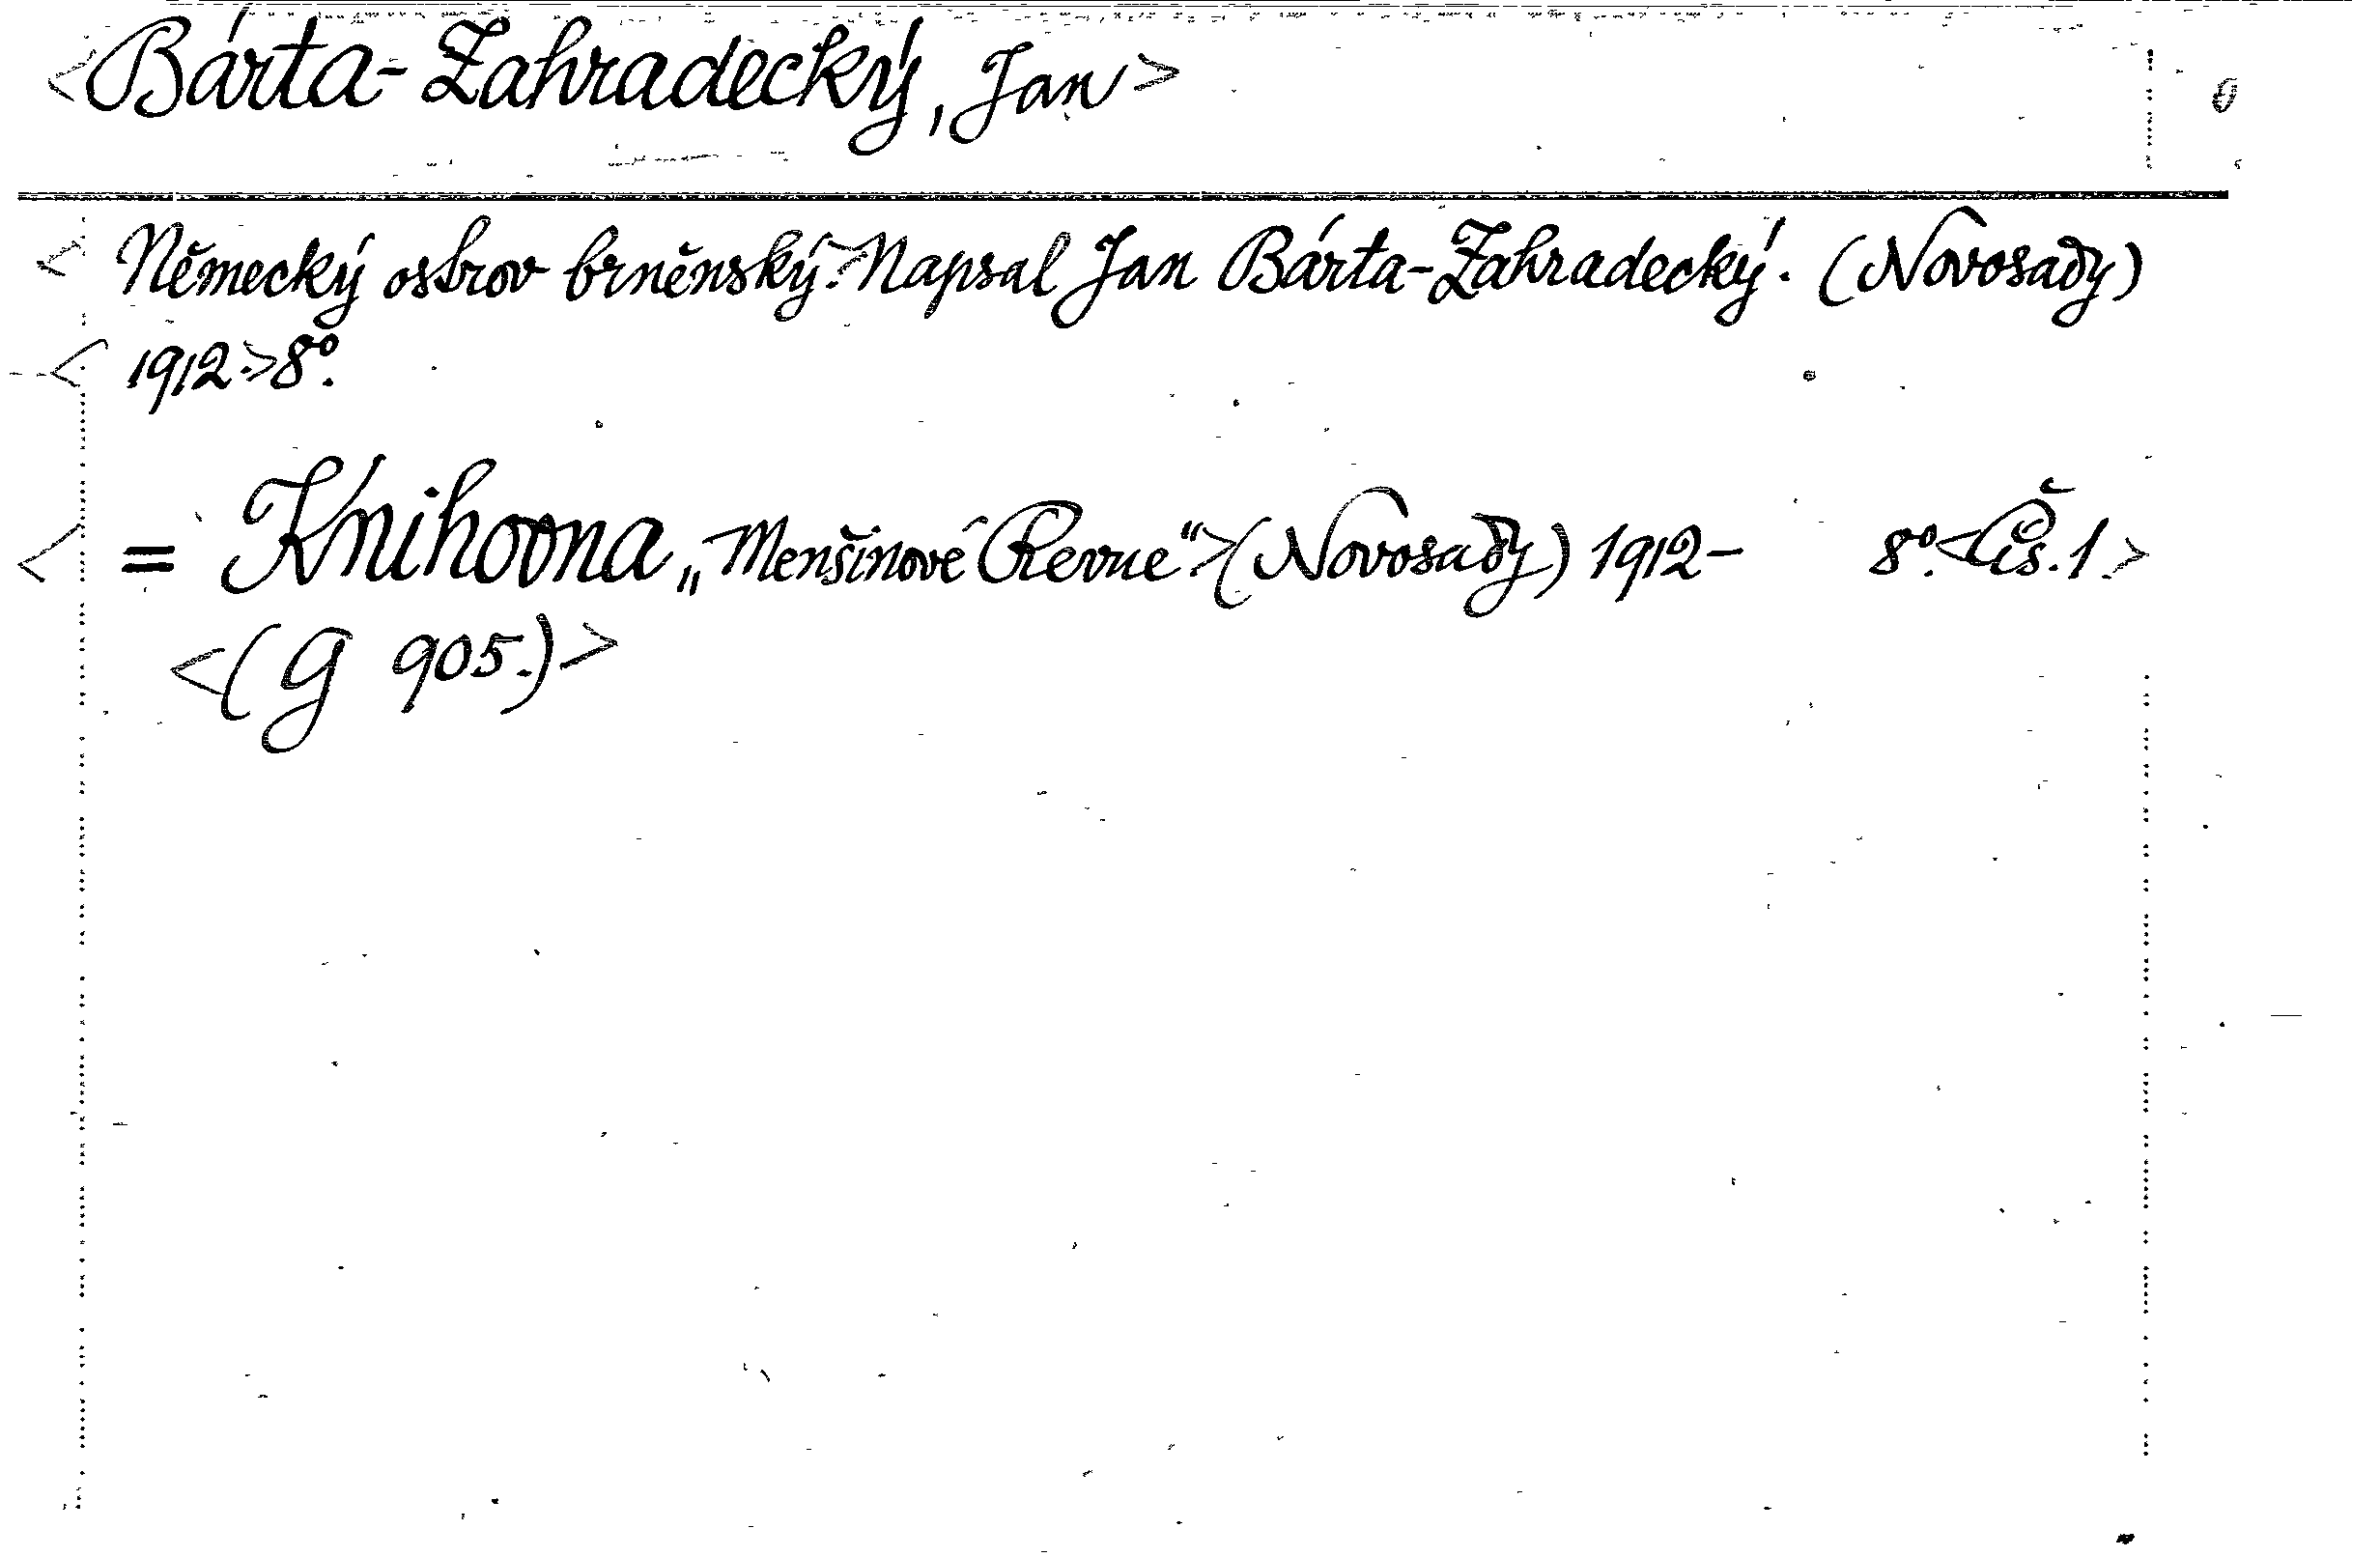 <Bárta-Zahradecký, Jan>
< Německý ostrov brněnský.> Napsal Jan Bárta-Zahradecký. (Novosady)
< 1912.> 8°.
< = Knihovna „Menšinové Revue“> (Novosady) 1912- 8°. <Čís. 1.>
<(G 905.)>